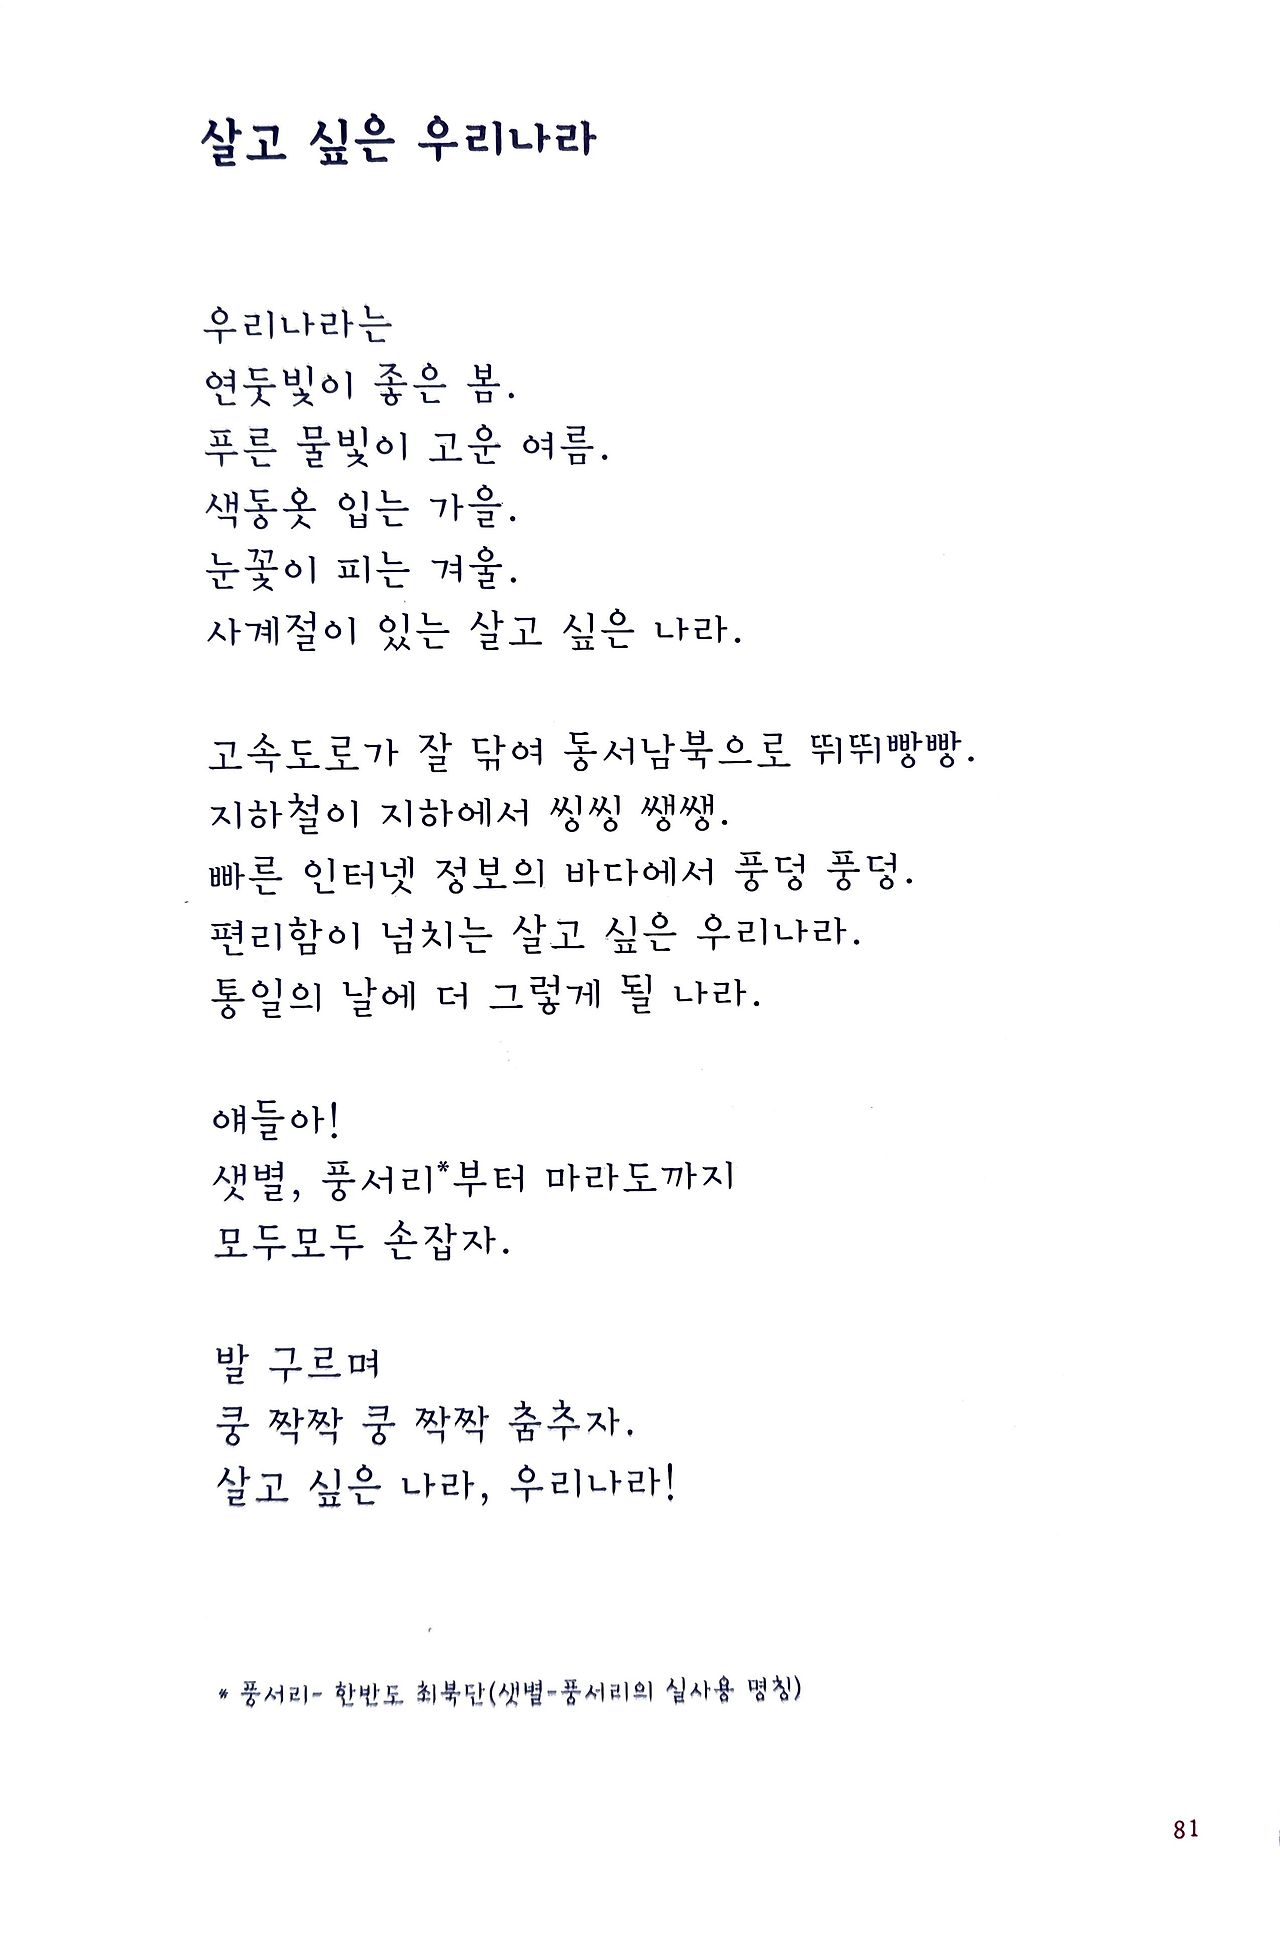 살고 싶은 우리나라
우리나라는
연둣빛이 좋은 봄.
푸른 물빛이 고운 여름.
색동옷 입는 가을.
눈꽃이 피는 겨울.
사계절이 있는 살고 싶은 나라.
고속도로가 잘 닦여 동서남북으로 뛰뛰빵빵.
지하철이 지하에서 씽씽 쌩쌩.
빠른 인터넷 정보의 바다에서 풍덩 풍덩.
편리함이 넘치는 살고 싶은 우리나라.
통일의 날에 더 그렇게 될 나라.
얘들아!
샛별, 풍서리*부터 마라도까지
모두모두 손잡자.
발 구르며
쿵 짝짝 쿵 짝짝 춤추자.
살고 싶은 나라, 우리나라!
* 풍서리- 한반도 최북단(샛별-풍서리의 실사용 명칭)
81